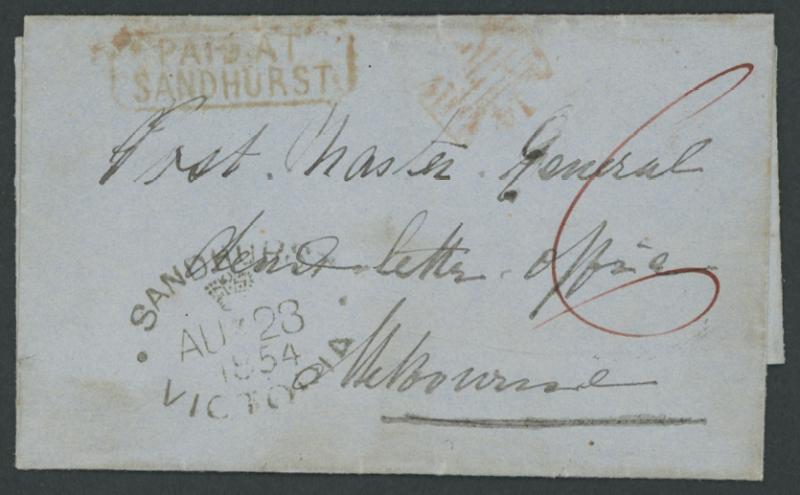 PAID AT
SANDHURST
Post Master General
Dead letter office
Melbourne
6
SANDHURST
AU 23
1854
VICTORIA